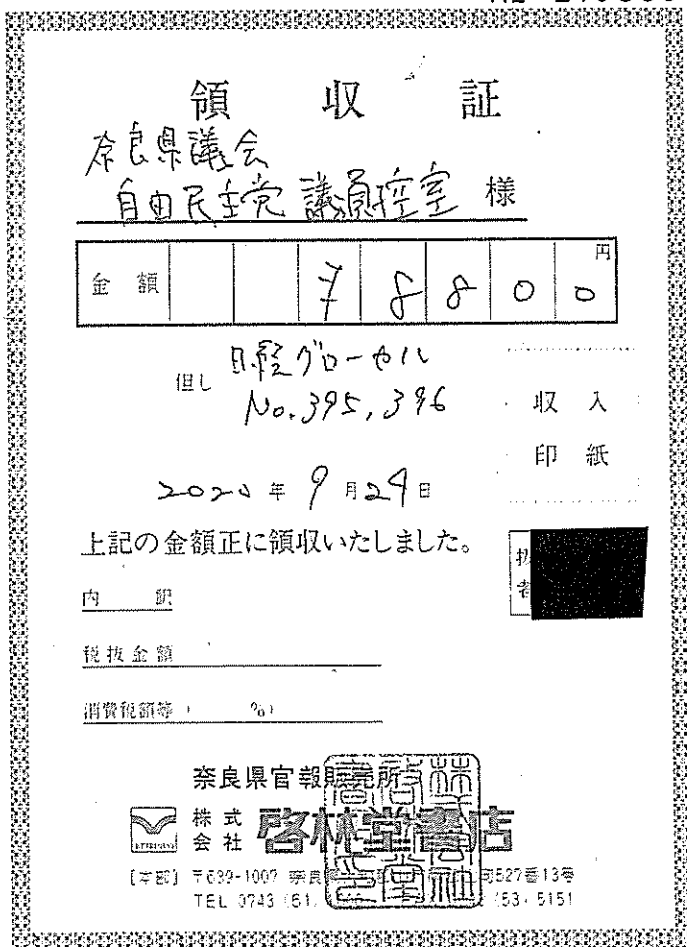 領収証
奈良県議会
自由民主党 議員控室 様
金額 ¥8800 円
但し 日経グローカル
No. 395, 396
収入
印紙
2020年 9月24日
上記の金額正に領収いたしました。
扱者
内訳
税抜金額
消費税額等( %)
奈良県官報販売所
株式会社 啓林堂書店
[本部] 〒639-1007 奈良 527番13号
TEL 0743 (53) 5151